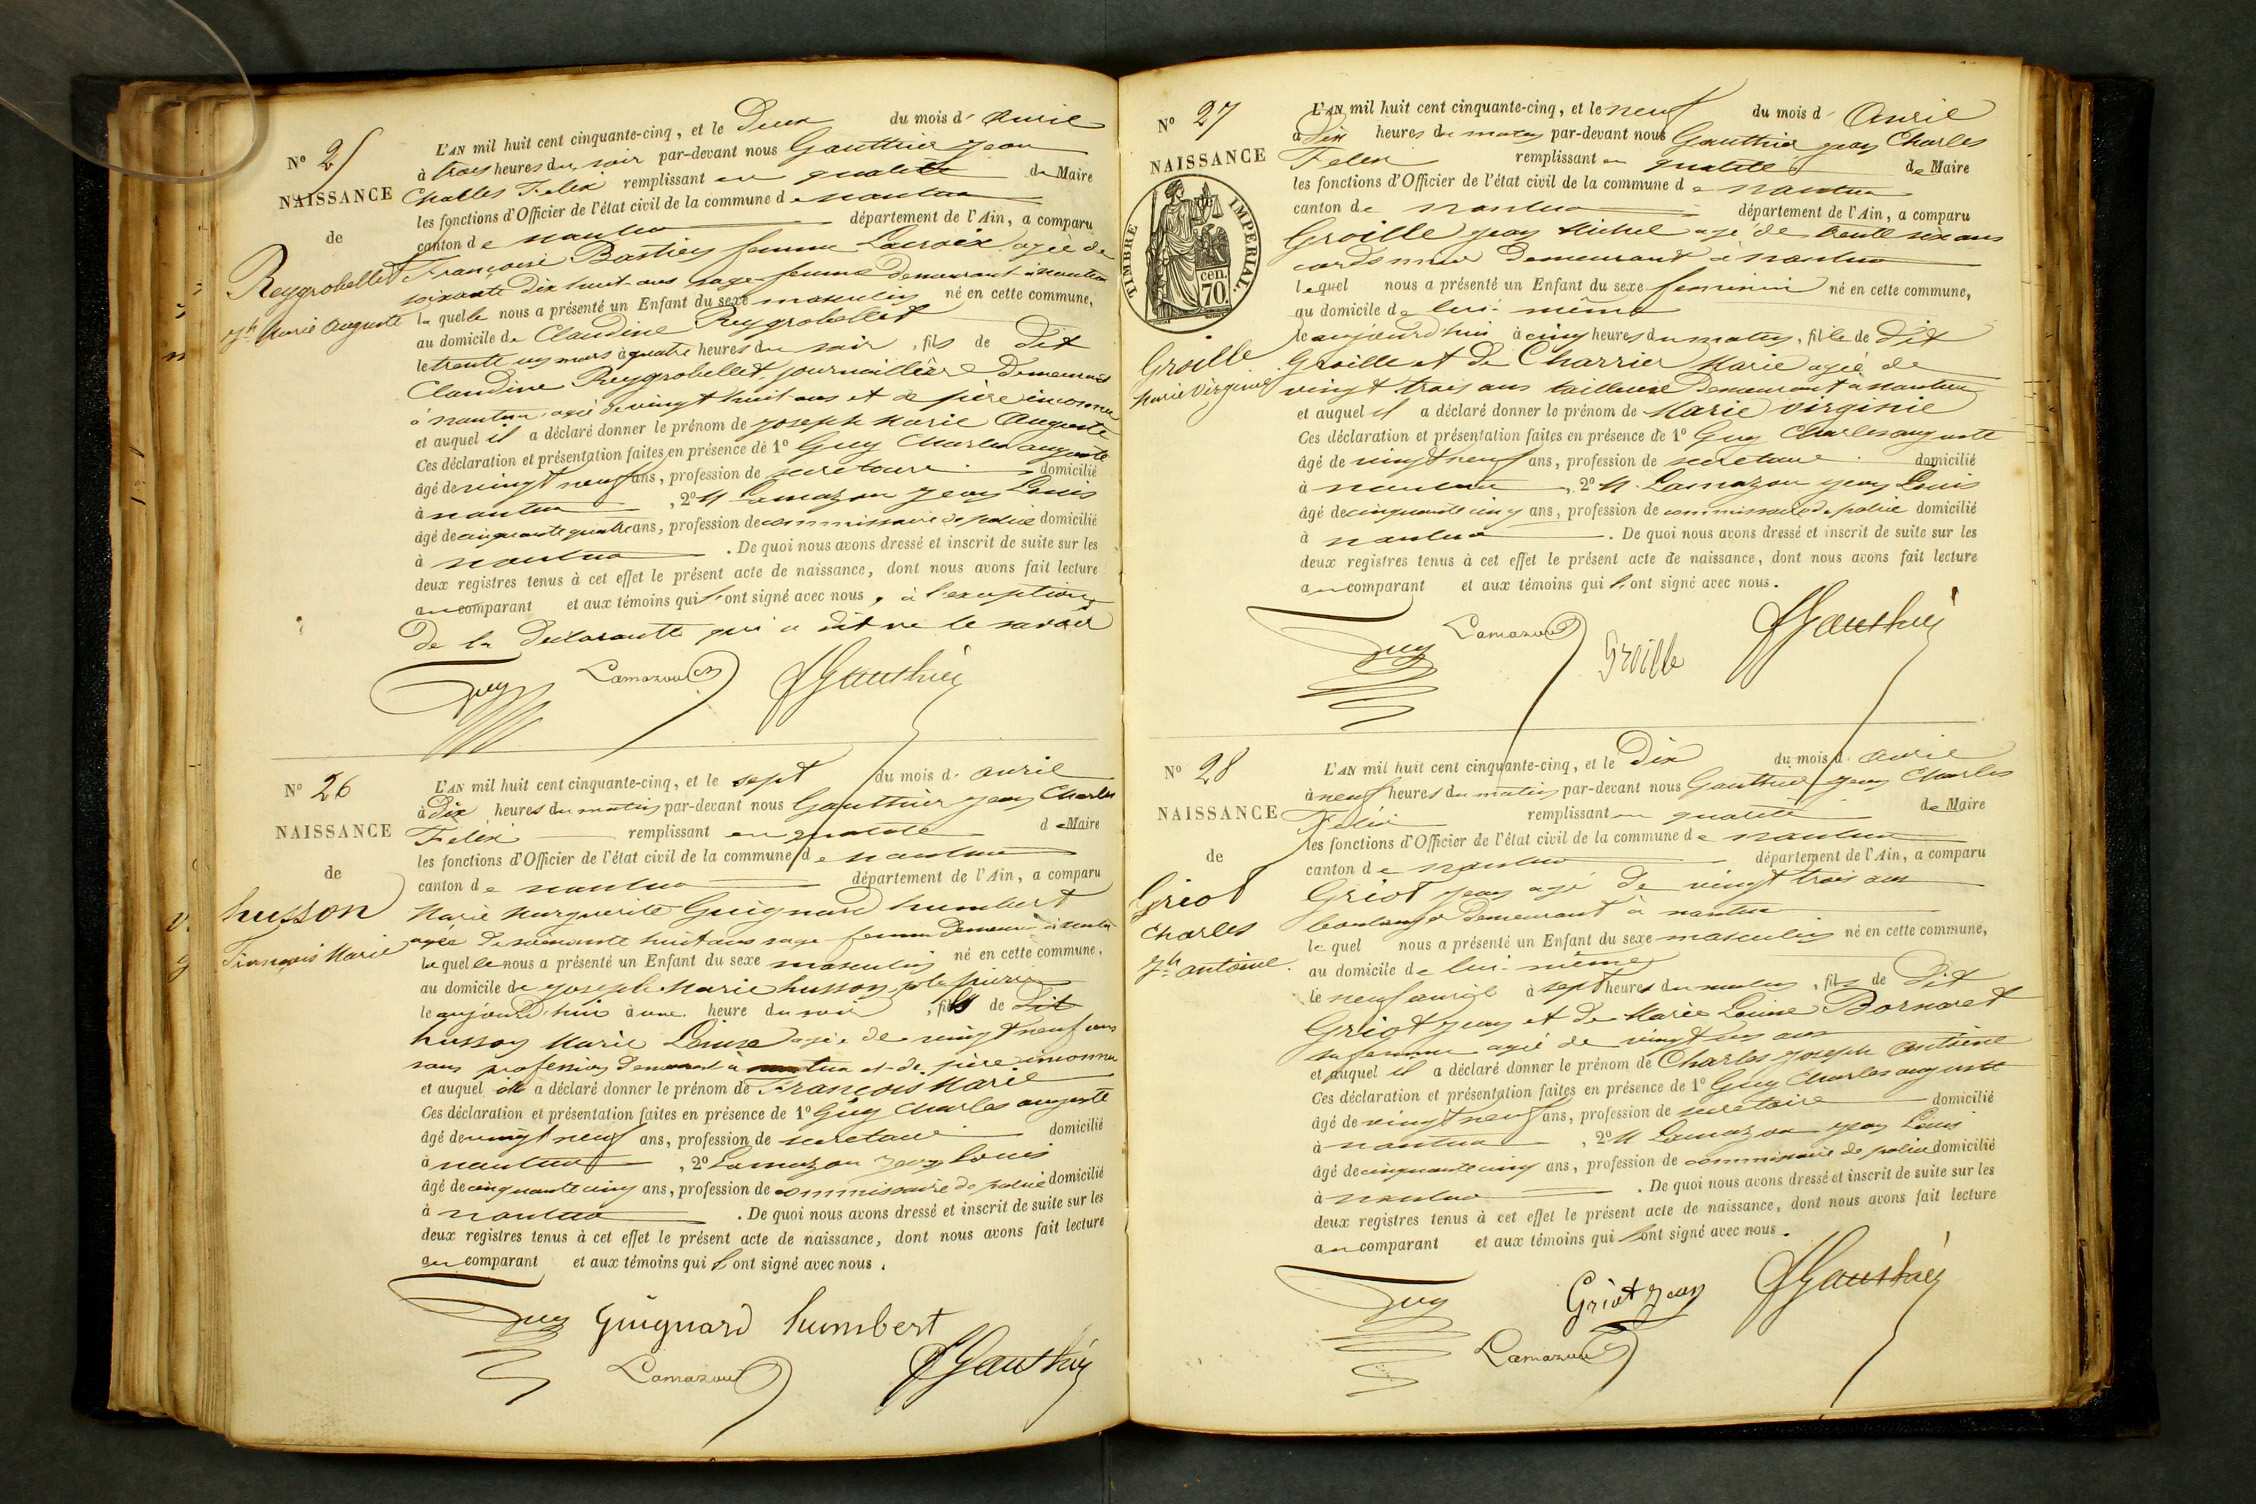 N° 25
NAISSANCE
de
Reygrobellet
Jh Marie Auguste
L'AN mil huit cent cinquante-cinq, et le Deux du mois d' avril
à trois heures du soir par-devant nous Gauthier jean
Charles Felix remplissant en qualité de Maire
les fonctions d'Officier de l'état civil de la commune de nantua
canton de nantua département de l'Ain, a comparu
Françoise Bastien femme Lacroix agée de
soixante Dix huit ans sage-femme demeurant à nantua
laquelle nous a présenté un Enfant du sexe masculin né en cette commune,
au domicile de Claudine Reygrobellet
le trente un mars à quatre heures du soir, fils de Dit
Claudine Reygrobellet journaillère demeurant
à nantua, agée de vingt huit ans et de père inconnu
et auquel il a déclaré donner le prénom de joseph Marie Auguste
Ces déclaration et présentation faites en présence de 1° Guy Charles auguste
âgé de vingt neuf ans, profession de secretaire domicilié
à nantua, 2° M Lamazou jean Louis
âgé de cinquante quatre ans, profession de commissaire de police domicilié
à nantua. De quoi nous avons dressé et inscrit de suite sur les
deux registres tenus à cet effet le présent acte de naissance, dont nous avons fait lecture
au comparant et aux témoins qui l'ont signé avec nous, à l'exception
De la Declarante qui a dit ne le savoir
Guy Lamazou Gauthier
N° 26
NAISSANCE
de
husson
François Marie
L'AN mil huit cent cinquante-cinq, et le sept du mois d' avril
à Dix heures du matin par-devant nous Gauthier jean Charles
Felix remplissant en qualité de Maire
les fonctions d'Officier de l'état civil de la commune de nantua
canton de nantua département de l'Ain, a comparu
Marie Marguerite Guignard humbert
agée de soixante huit ans sage-femme demeurant à nantua
laquelle nous a présenté un Enfant du sexe masculin né en cette commune,
au domicile de joseph Marie husson
le aujourd'hui à une heure du soir, fils de Dit
husson Marie Louise agée de vingt neuf ans
sans profession demeurant à nantua et de père inconnu
et auquel elle a déclaré donner le prénom de François Marie
Ces déclaration et présentation faites en présence de 1° Guy Charles auguste
âgé de vingt neuf ans, profession de secretaire domicilié
à nantua, 2° Lamazou jean Louis
âgé de cinquante cinq ans, profession de commissaire de police domicilié
à nantua. De quoi nous avons dressé et inscrit de suite sur les
deux registres tenus à cet effet le présent acte de naissance, dont nous avons fait lecture
au comparant et aux témoins qui l'ont signé avec nous.
Guy Guignard humbert
Lamazou Gauthier
N° 27
NAISSANCE
TIMBRE IMPERIAL.
70 cen.
Groille
Marie Virginie
L'AN mil huit cent cinquante-cinq, et le neuf du mois d' Avril
à Dix heures du matin par-devant nous Gauthier jean Charles
Felix remplissant en qualité de Maire
les fonctions d'Officier de l'état civil de la commune de nantua
canton de nantua département de l'Ain, a comparu
Groille jean Michel agé de trente six ans
cordonnier demeurant à nantua
lequel nous a présenté un Enfant du sexe feminin né en cette commune,
au domicile de lui-même
le aujourd'hui à cinq heures du matin, fille de Dit
Groille et de Charrier Marie agée de
vingt trois ans tailleuse demeurant à nantua
et auquel il a déclaré donner le prénom de Marie virginie
Ces déclaration et présentation faites en présence de 1° Guy Charles auguste
âgé de vingt neuf ans, profession de secretaire domicilié
à nantua, 2° M. Lamazou jean Louis
âgé de cinquante cinq ans, profession de commissaire de police domicilié
à nantua. De quoi nous avons dressé et inscrit de suite sur les
deux registres tenus à cet effet le présent acte de naissance, dont nous avons fait lecture
au comparant et aux témoins qui l'ont signé avec nous.
Guy Lamazou Groille Gauthier
N° 28
NAISSANCE
de
Griot
Charles
Jh antoine.
L'AN mil huit cent cinquante-cinq, et le Dix du mois d' avril
à neuf heures du matin par-devant nous Gauthier jean Charles
Felix remplissant en qualité de Maire
les fonctions d'Officier de l'état civil de la commune de nantua
canton de nantua département de l'Ain, a comparu
Griot jean agé de vingt trois ans
boulanger demeurant à nantua
lequel nous a présenté un Enfant du sexe masculin né en cette commune,
au domicile de lui-même
le neuf avril à sept heures du matin, fils de Dit
Griot jean et de Marie Louise Bornaret
sa femme agée de vingt six ans
et auquel il a déclaré donner le prénom de Charles joseph Antoine
Ces déclaration et présentation faites en présence de 1° Guy Charles auguste
âgé de vingt neuf ans, profession de secretaire domicilié
à nantua, 2° M Lamazou jean Louis
âgé de cinquante cinq ans, profession de commissaire de police domicilié
à nantua. De quoi nous avons dressé et inscrit de suite sur les
deux registres tenus à cet effet le présent acte de naissance, dont nous avons fait lecture
au comparant et aux témoins qui l'ont signé avec nous.
Guy Griot jean Gauthier
Lamazou